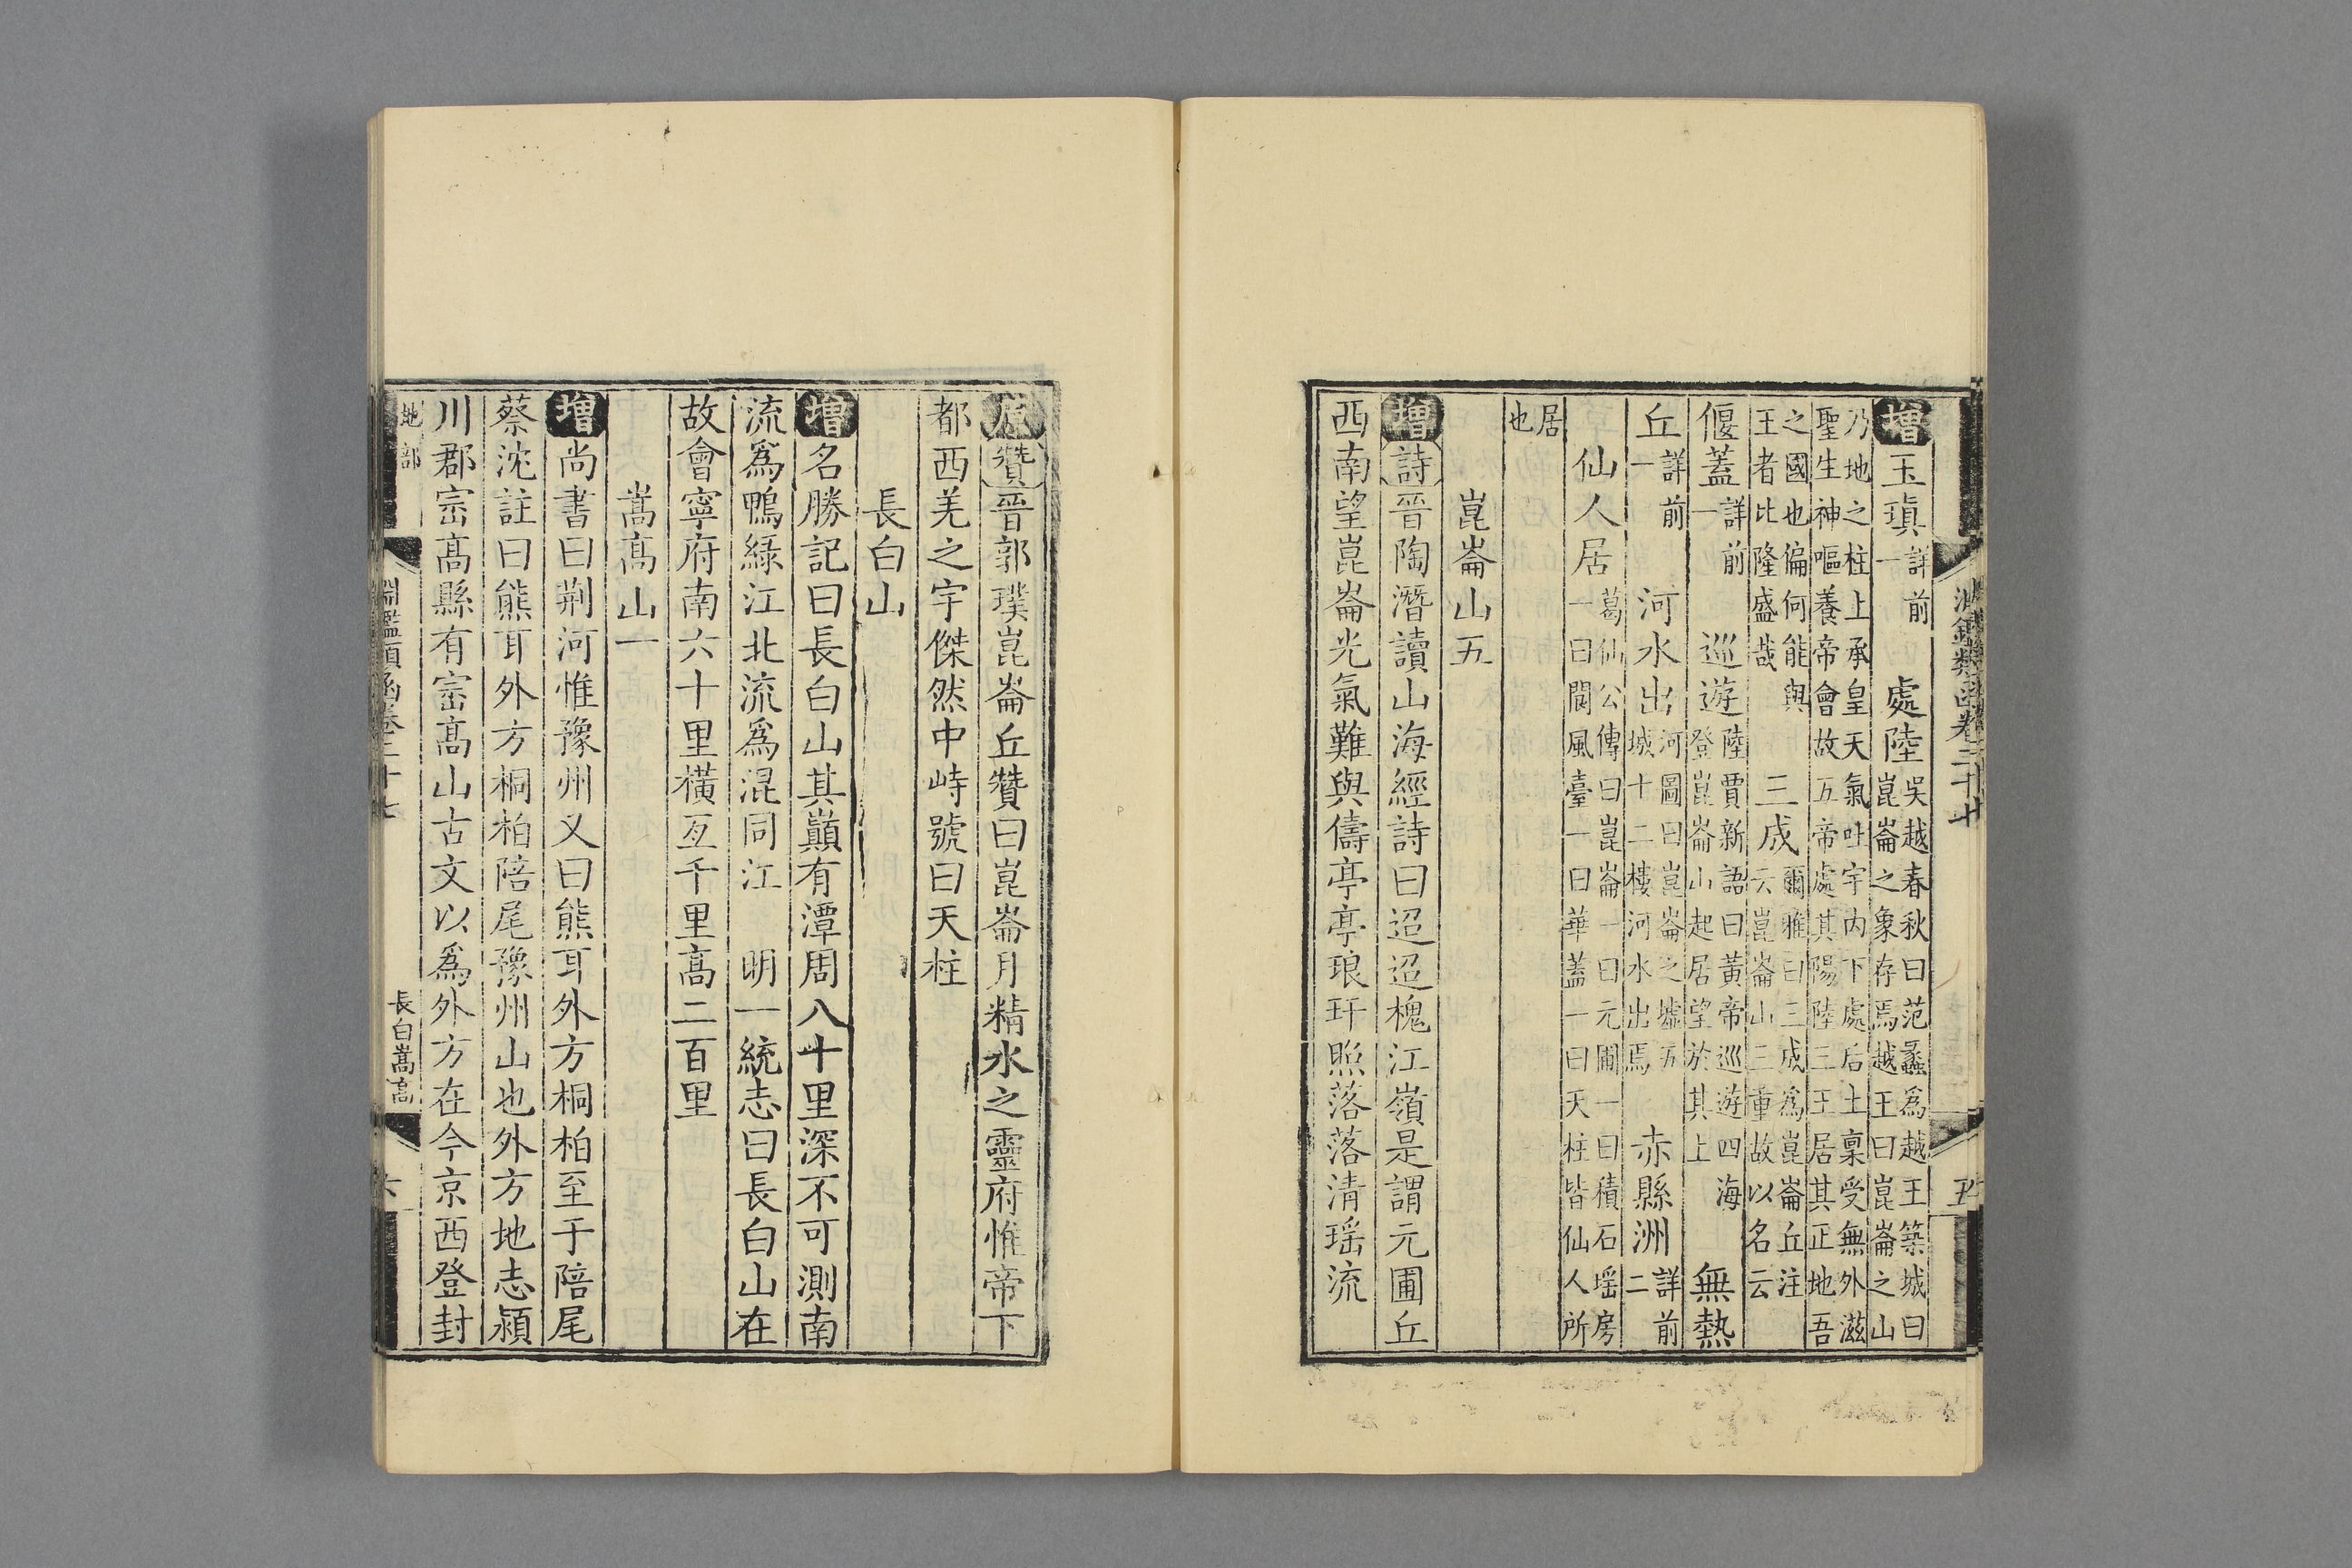 淵鑑類函卷二十七 五
增玉瑱詳前一 處陸吳越春秋曰范蠡爲越王築城曰崑崙之象存焉越王曰崑崙之山
乃地之柱上承皇天氣吐宇内下處后土稟受無外滋聖生神嘔養帝會故五帝處其陽陸三王居其正地吾
之國也偏何能與王者比隆盛哉 三成爾雅曰三成爲崑崙丘注云崑崙山三重故以名云
偃蓋詳前一 巡遊陸賈新語曰黃帝巡遊四海登崑崙山起居望於其上 無熱
丘詳前一 河水出河圖曰崑崙之墟五城十二樓河水出焉 赤縣洲詳前二
仙人居葛仙公傳曰崑崙一曰元圃一曰積石瑶房一曰閬風臺一曰華蓋一曰天柱皆仙人所
居也
崑崙山五
增詩晉陶潛讀山海經詩曰迢迢槐江嶺是謂元圃丘
西南望崑崙光氣難與儔亭亭琅玕照落落清瑶流
原贊晉郭璞崑崙丘贊曰崑崙月精水之靈府惟帝下
都西羌之宇傑然中峙號曰天柱
長白山
增名勝記曰長白山其巔有潭周八十里深不可測南
流爲鴨緑江北流爲混同江 明一統志曰長白山在
故會寧府南六十里橫亙千里髙二百里
嵩髙山一
增尚書曰荆河惟豫州又曰熊耳外方桐柏至于陪尾
蔡沈註曰熊耳外方桐柏陪尾豫州山也外方地志潁
川郡崈髙縣有崈髙山古文以爲外方在今京西登封
地部 淵鑑類函卷二十七 長白嵩髙 六